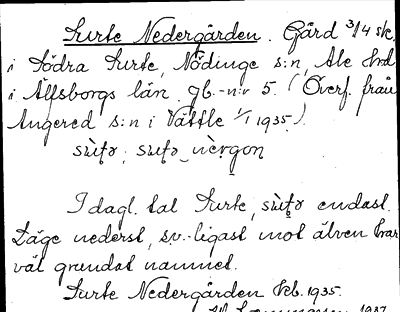 Surte Nedergården. Gård 3/4 sk.
i Södra Surte, Nödinge s:n, Ale hrd
i Älfsborgs län. gb.-n:r 5. (Överf. från
Angered s:n i Vättle 1/1 1935.)
I dagl. tal Surte, endast.
Läge nederst, sv.-ligast mot älven har
väl grundat namnet.
Surte Nedergården Feb. 1935.